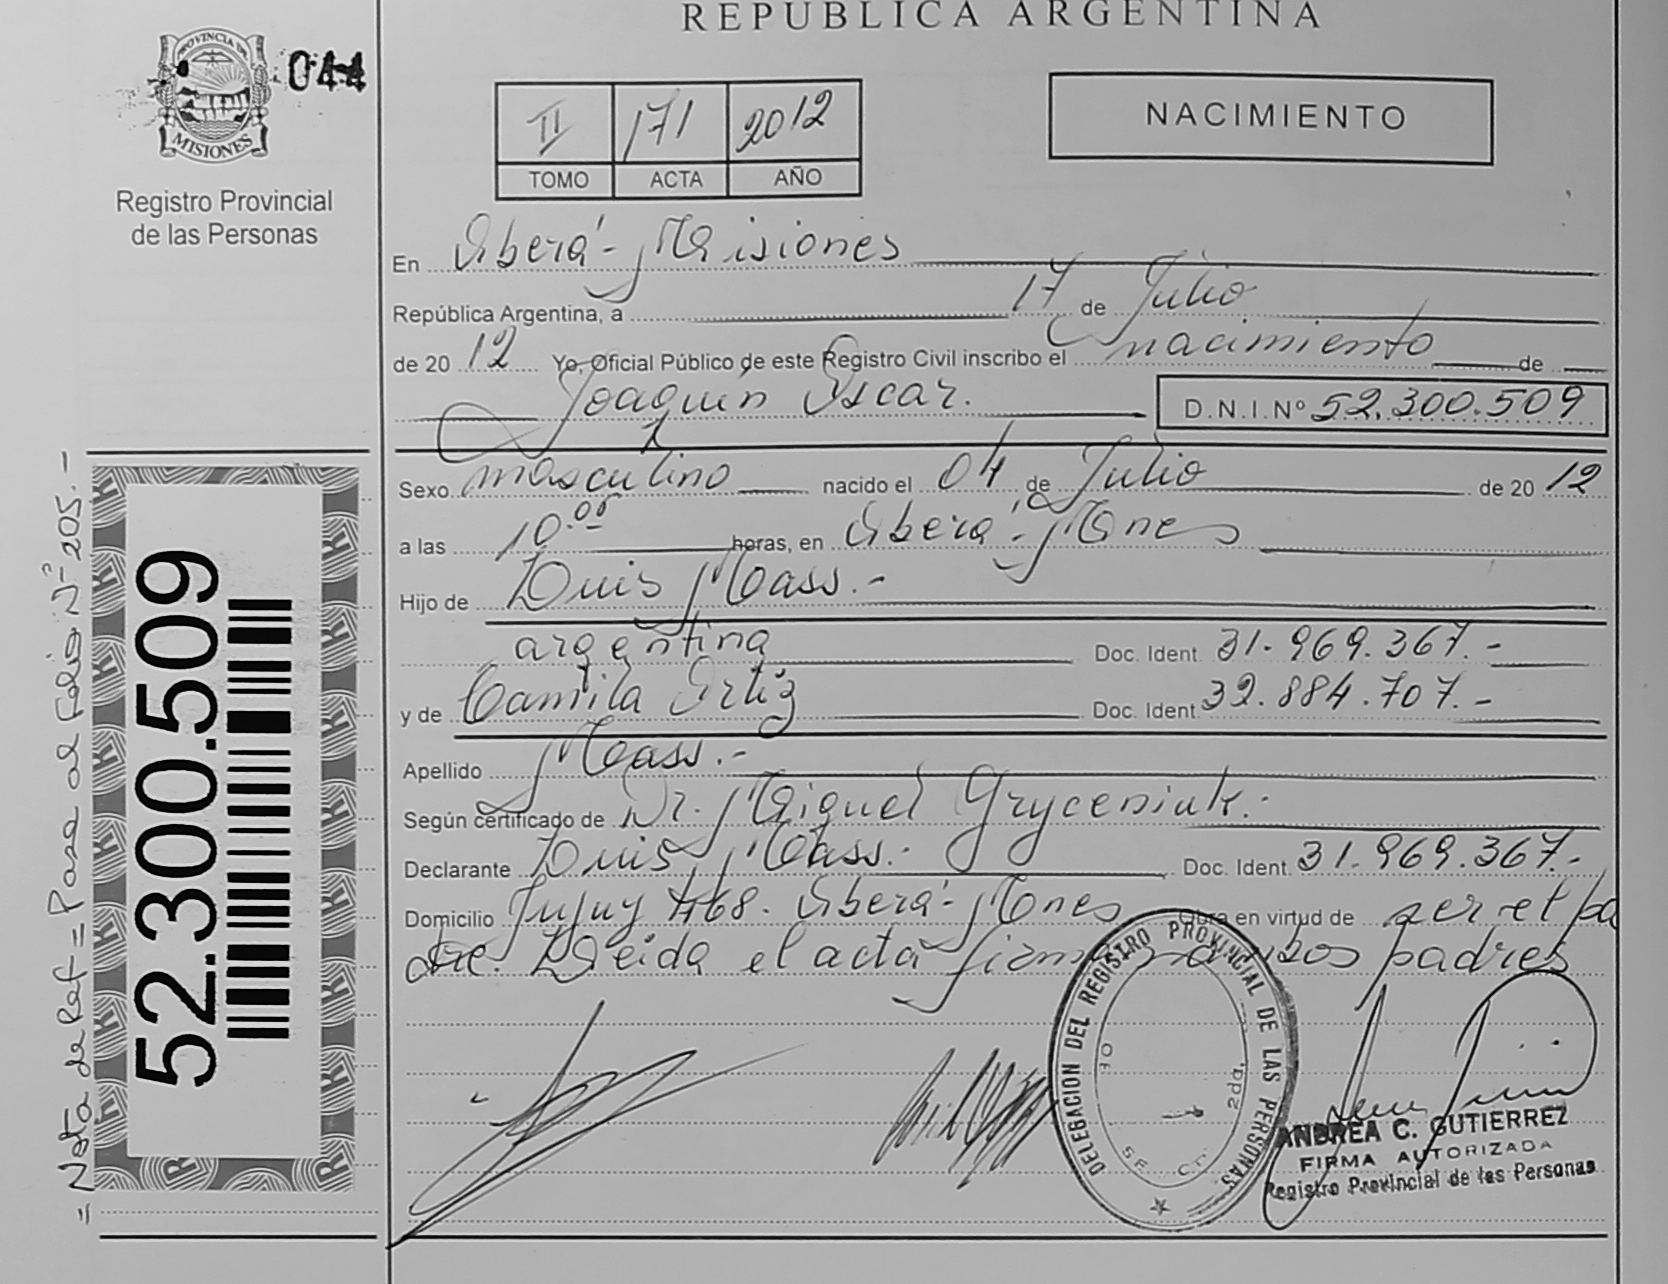 REPUBLICA ARGENTINA
PROVINCIA DE
MISIONES
044
Registro Provincial
de las Personas
II 171 2012
TOMO ACTA AÑO
NACIMIENTO
En Oberá - Misiones
República Argentina, a 17 de Julio
de 2012 Yo, Oficial Público de este Registro Civil inscribo el nacimiento de
Joaquín Oscar. D.N.I.Nº 52.300.509
Sexo masculino nacido el 04 de Julio de 2012
a las 10.00 horas, en Oberá - Mnes
Hijo de Luis Mass.-
argentina Doc. Ident 31.969.367.-
y de Camila Ortiz Doc. Ident. 32.884.707.-
Apellido Mass.-
Según certificado de Dr. Miguel Gryceniuk.
Declarante Luis Mass.- Doc. Ident. 31.969.367.-
Domicilio Jujuy 468. Oberá - Mnes Obra en virtud de ser el pa
dre. Leida el acta padres
DELEGACION DEL REGISTRO PROVINCIAL DE LAS PERSONAS
2da.
ANDREA C. GUTIERREZ
FIRMA AUTORIZADA
Registro Provincial de las Personas
52.300.509
Nota de Ref = Pasa al Folio Nº 205.-